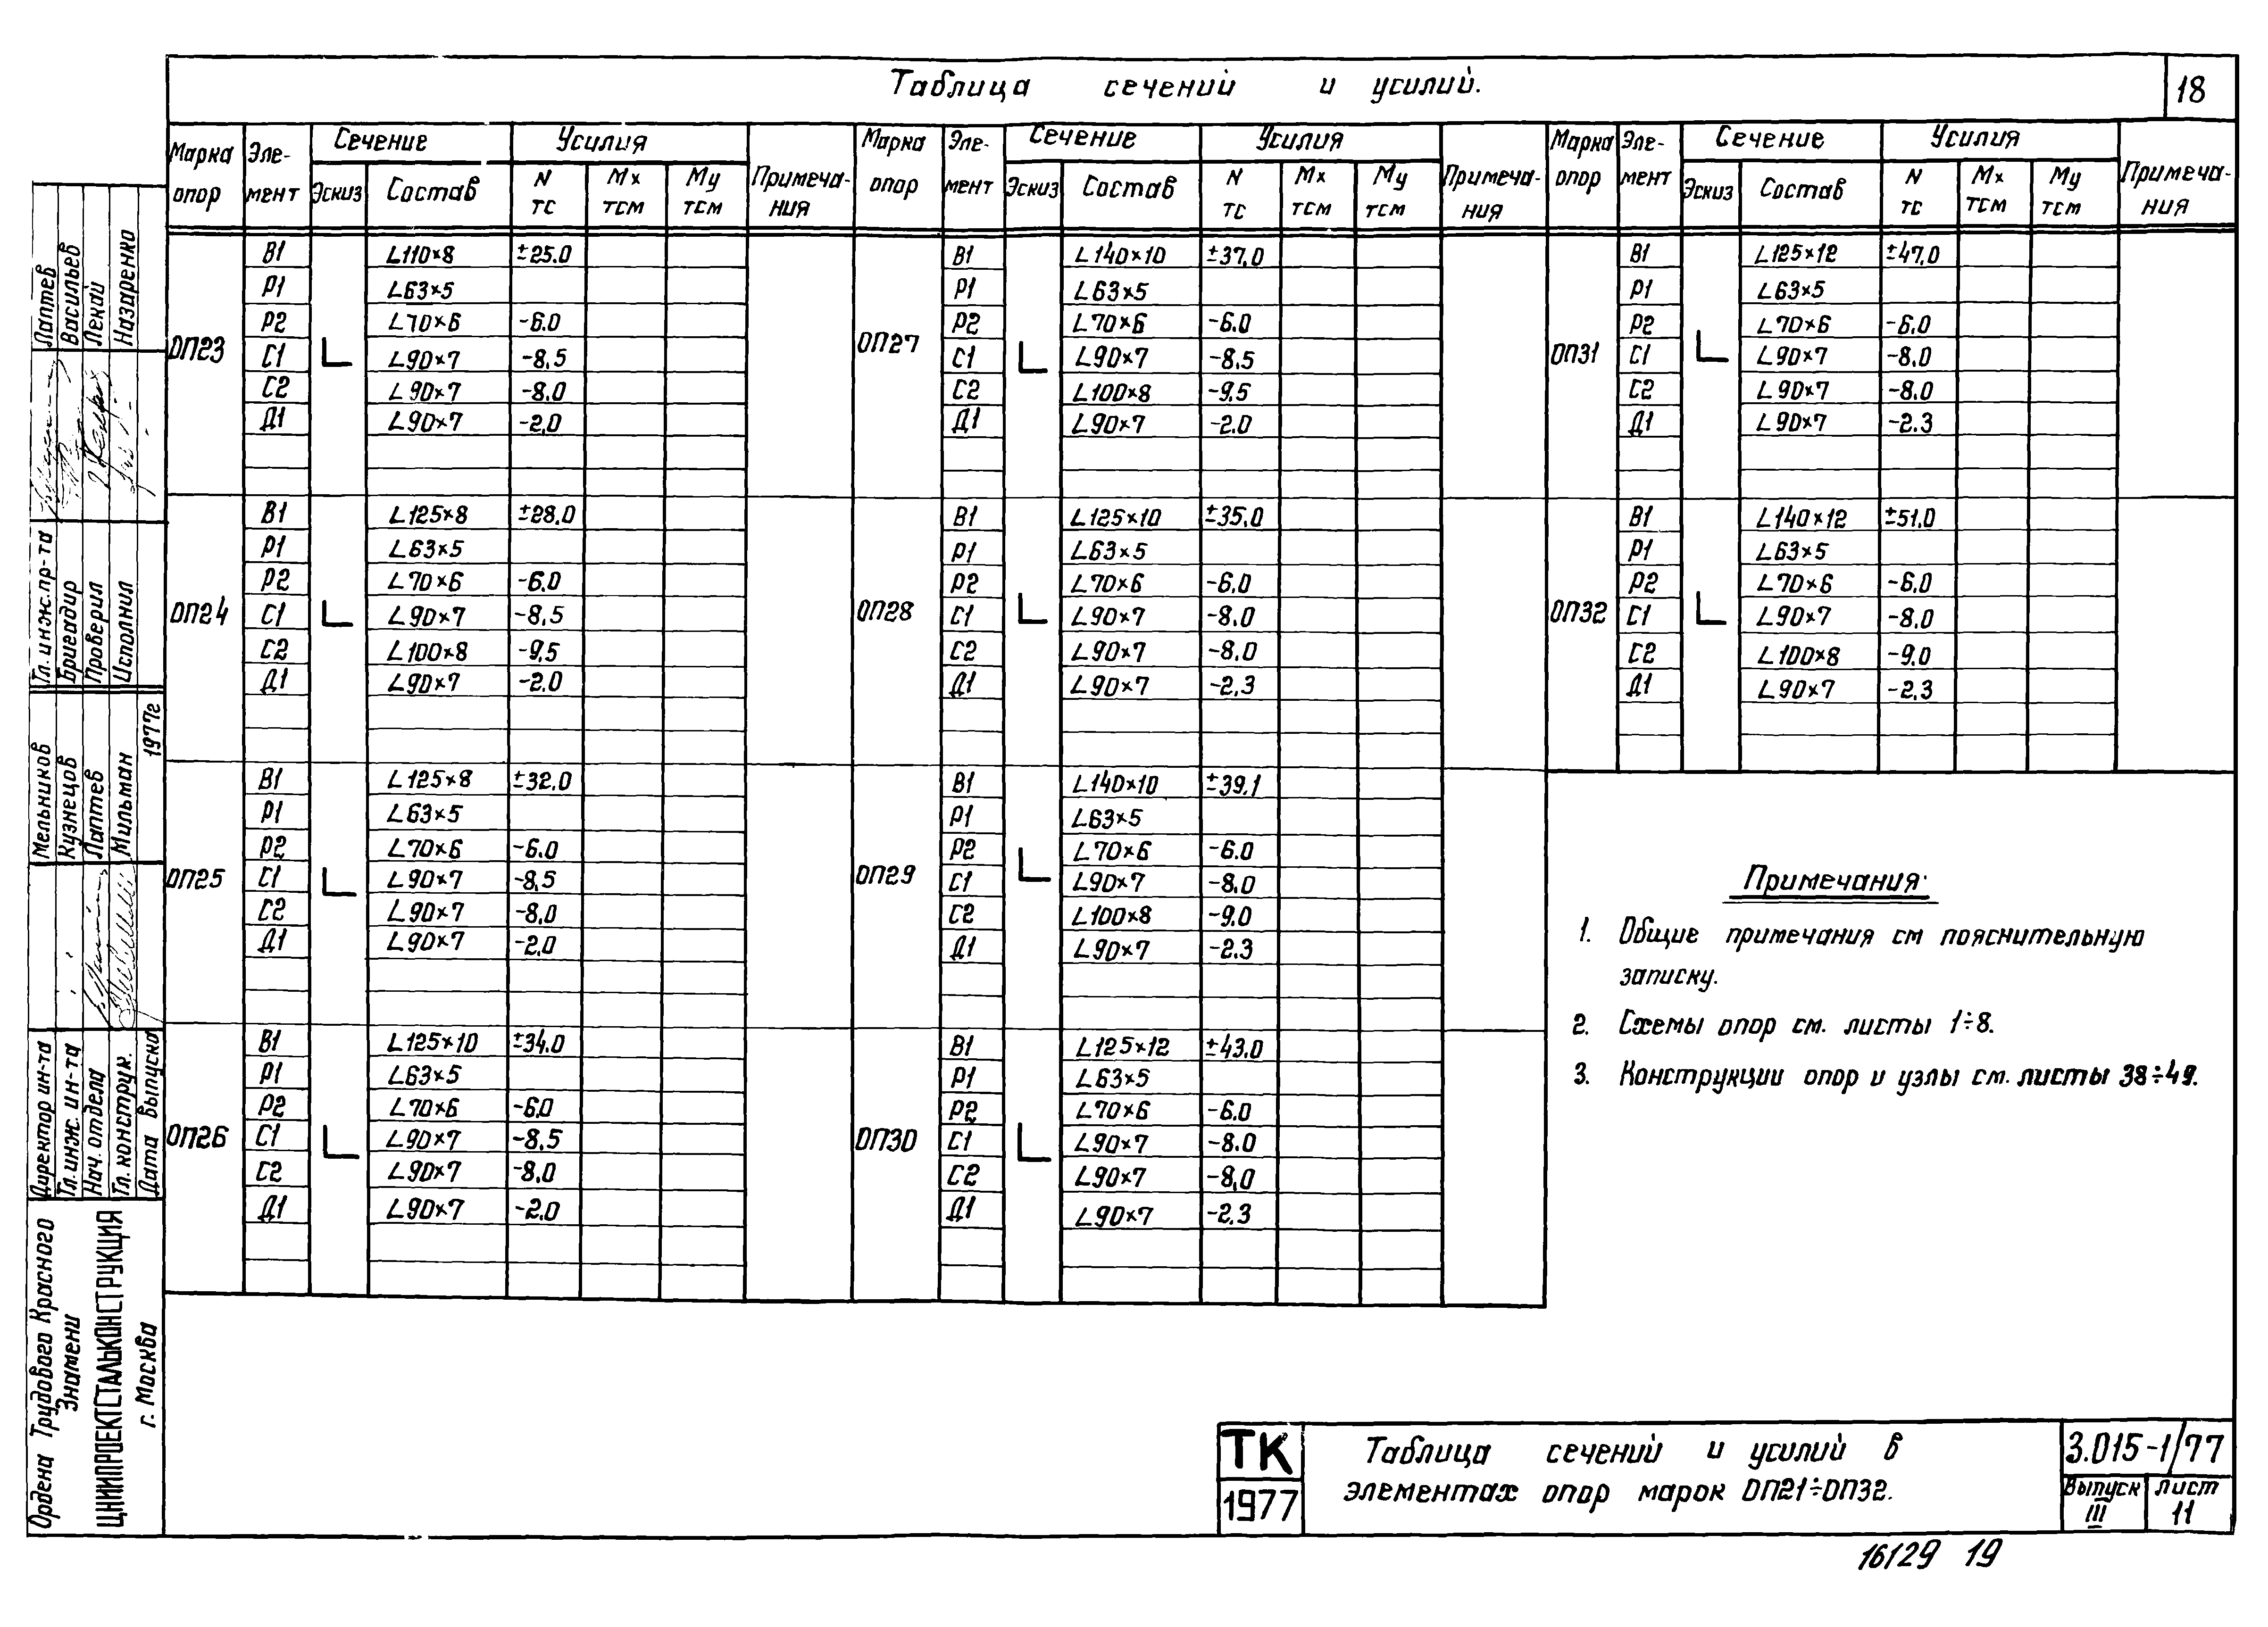 Таблица сечений и усилий.
18
Марка опор Эле-мент Сечение Усилия Примеча-ния Марка опор Эле-мент Сечение Усилия Примеча-ния Марка опор Эле-мент Сечение Усилия Примеча-ния
Эскиз Состав N тс Mx тсм My тсм Эскиз Состав N тс Mx тсм My тсм Эскиз Состав N тс Mx тсм My тсм
ОП23
В1 L110×8 ±25.0
Р1 L63×5
Р2 L70×6 -6.0
С1 L90×7 -8,5
С2 L90×7 -8.0
Д1 L90×7 -2,0
ОП24
В1 L125×8 ±28.0
Р1 L63×5
Р2 L70×6 -6.0
С1 L90×7 -8,5
С2 L100×8 -9,5
Д1 L90×7 -2.0
ОП25
В1 L125×8 ±32.0
Р1 L63×5
Р2 L70×6 -6.0
С1 L90×7 -8,5
С2 L90×7 -8.0
Д1 L90×7 -2,0
ОП26
В1 L125×10 ±34.0
Р1 L63×5
Р2 L70×6 -6.0
С1 L90×7 -8,5
С2 L90×7 -8.0
Д1 L90×7 -2.0
ОП27
В1 L140×10 ±37,0
Р1 L63×5
Р2 L70×6 -6.0
С1 L90×7 -8,5
С2 L100×8 -9,5
Д1 L90×7 -2.0
ОП28
В1 L125×10 ±35.0
Р1 L63×5
Р2 L70×6 -6.0
С1 L90×7 -8.0
С2 L90×7 -8.0
Д1 L90×7 -2,3
ОП29
В1 L140×10 ±39,1
Р1 L63×5
Р2 L70×6 -6.0
С1 L90×7 -8.0
С2 L100×8 -9.0
Д1 L90×7 -2.3
ОП30
В1 L125×12 ±43.0
Р1 L63×5
Р2 L70×6 -6.0
С1 L90×7 -8.0
С2 L90×7 -8,0
Д1 L90×7 -2,3
ОП31
В1 L125×12 ±47,0
Р1 L63×5
Р2 L70×6 -6.0
С1 L90×7 -8.0
С2 L90×7 -8.0
Д1 L90×7 -2.3
ОП32
В1 L140×12 ±51.0
Р1 L63×5
Р2 L70×6 -6.0
С1 L90×7 -8.0
С2 L100×8 -9.0
Д1 L90×7 -2.3
Примечания:
1. Общие примечания см пояснительную
записку.
2. Схемы опор см. листы 1÷8.
3. Конструкции опор и узлы см. листы 38÷49.
Гл. инж. пр-та Лаптев
Бригадир Васильев
Проверил Лекай
Исполнил Назаренко
Директор ин-та Мельников
Гл. инж. ин-та Кузнецов
Нач. отдела Лаптев
Гл. конструк. Мильман
Дата выпуска 1977г
Ордена Трудового Красного
Знамени
ЦНИИПРОЕКТСТАЛЬКОНСТРУКЦИЯ
г. Москва
ТК
1977
Таблица сечений и усилий в
элементах опор марок ОП21÷ОП32.
3.015-1/77
Выпуск III
Лист 11
16129 19